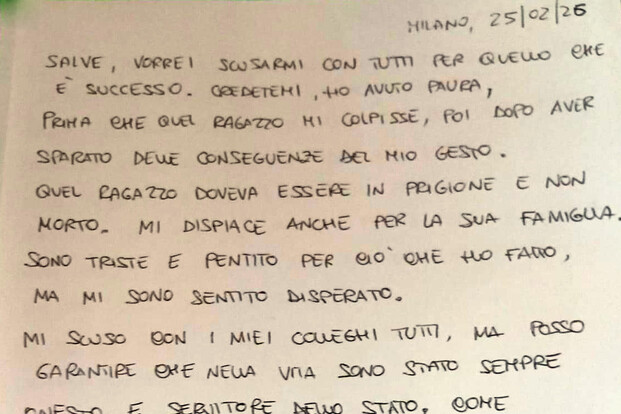 MILANO, 25/02/26
SALVE, VORREI SCUSARMI CON TUTTI PER QUELLO CHE
E' SUCCESSO. CREDETEMI, HO AVUTO PAURA,
PRIMA CHE QUEL RAGAZZO MI COLPISSE, POI DOPO AVER
SPARATO DELLE CONSEGUENZE DEL MIO GESTO.
QUEL RAGAZZO DOVEVA ESSERE IN PRIGIONE E NON
MORTO. MI DISPIACE ANCHE PER LA SUA FAMIGLIA.
SONO TRISTE E PENTITO PER CIO' CHE HO FATTO,
MA MI SONO SENTITO DISPERATO.
MI SCUSO CON I MIEI COLLEGHI TUTTI, MA POSSO
GARANTIRE CHE NELLA VITA SONO STATO SEMPRE
ONESTO E SERVITORE DELLO STATO. COME